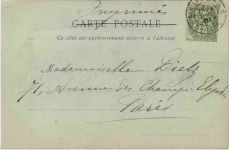 Imprimés
CARTE POSTALE
Ce côté est exclusivement réservé à l'adresse
Mademoiselle Diels
71, Avenue des Champs-Elysées
Paris